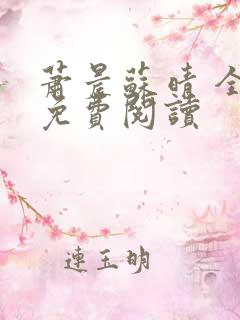 蕭晨蘇晴 全
免費閱讀
連玉明